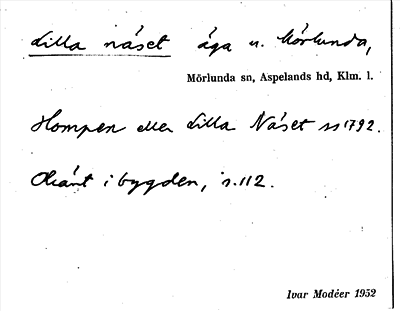 Lilla näset äga u. Mörlunda,
Mörlunda sn, Aspelands hd, Klm. l.
Hompen eller Lilla Näset 1792.
Okänt i bygden, s. 112.
Ivar Modéer 1952